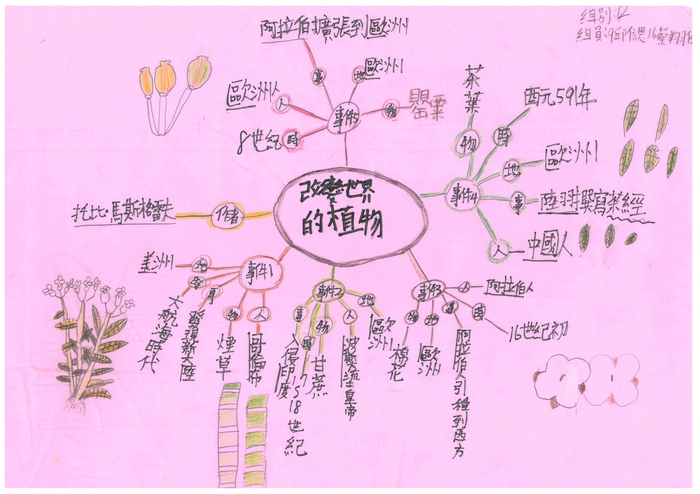 組別:12
阿拉伯擴張到歐洲
事
地
歐洲
歐洲人
人
事件5
物
罌粟
8世紀
時
茶葉
物
時
西元591年
地
歐洲
事件4
事
陸羽撰寫茶經
人
中國人
改變世界
的植物
作者
托比·馬斯格雷夫
事件1
地
美洲
時
大航海時代
事
發現新大陸
物
煙草
人
哥倫布
事件2
事
入侵印度
時
物
甘蔗
人
波斯
皇帝
地
歐洲
事件3
人
阿拉伯人
時
16世紀初
事
阿拉伯人引種到西方
地
歐洲
物
棉花